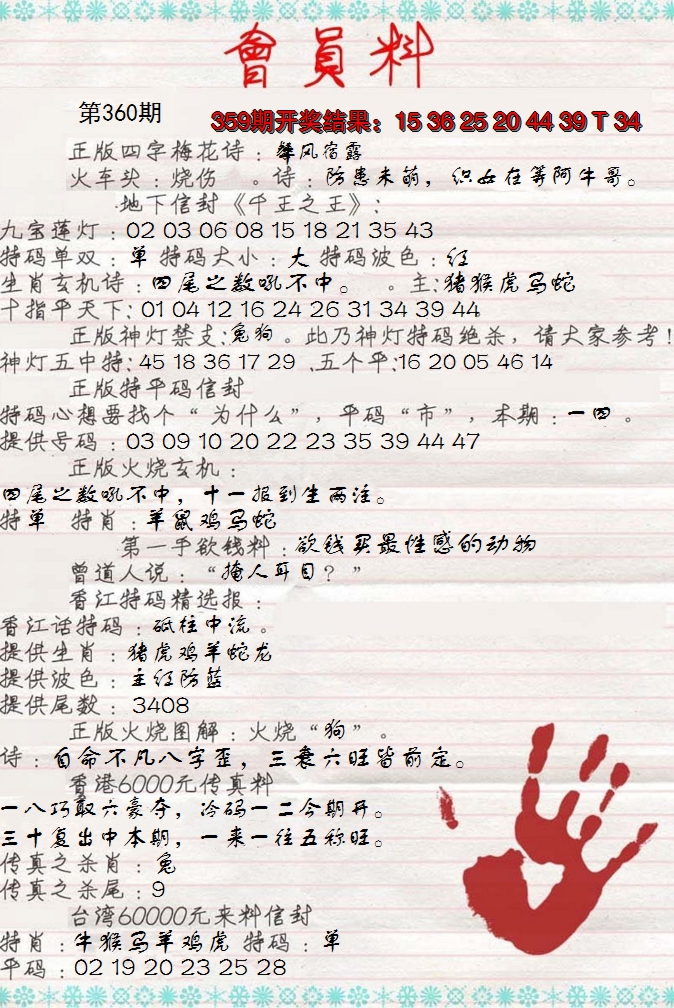 會員料
第360期
359期开奖结果：15 36 25 20 44 39 T 34
正版四字梅花诗：餐风宿露
火车头：烧伤 。诗：防患未萌，织女在等阿牛哥。
地下信封《千王之王》：
九宝莲灯：02 03 06 08 15 18 21 35 43
特码单双：单 特码大小：大 特码波色：红
生肖玄机诗：四尾之数吼不中。 。主：猪猴虎马蛇
十指平天下：01 04 12 16 24 26 31 34 39 44
正版神灯禁支：兔狗。此乃神灯特码绝杀，请大家参考！
神灯五中特：45 18 36 17 29 、五个平：16 20 05 46 14
正版特平码信封
特码心想要找个“为什么”，平码“市”，本期：一四。
提供号码：03 09 10 20 22 23 35 39 44 47
正版火烧玄机：
四尾之数吼不中，十一报到生两注。
特单 特肖：羊鼠鸡马蛇
第一手欲钱料：欲钱买最性感的动物
曾道人说：“掩人耳目？”
香江特码精选报：
香江话特码：砥柱中流。
提供生肖：猪虎鸡羊蛇龙
提供波色：主红防蓝
提供尾数：3408
正版火烧图解：火烧“狗”。
诗：自命不凡八字歪，三衰六旺皆前定。
香港6000元传真料
一八巧取六豪夺，冷码一二今期开。
三十复出中本期，一来一往五称旺。
传真之杀肖：兔
传真之杀尾：9
台湾60000元来料信封
特肖：牛猴马羊鸡虎 特码：单
平码：02 19 20 23 25 28